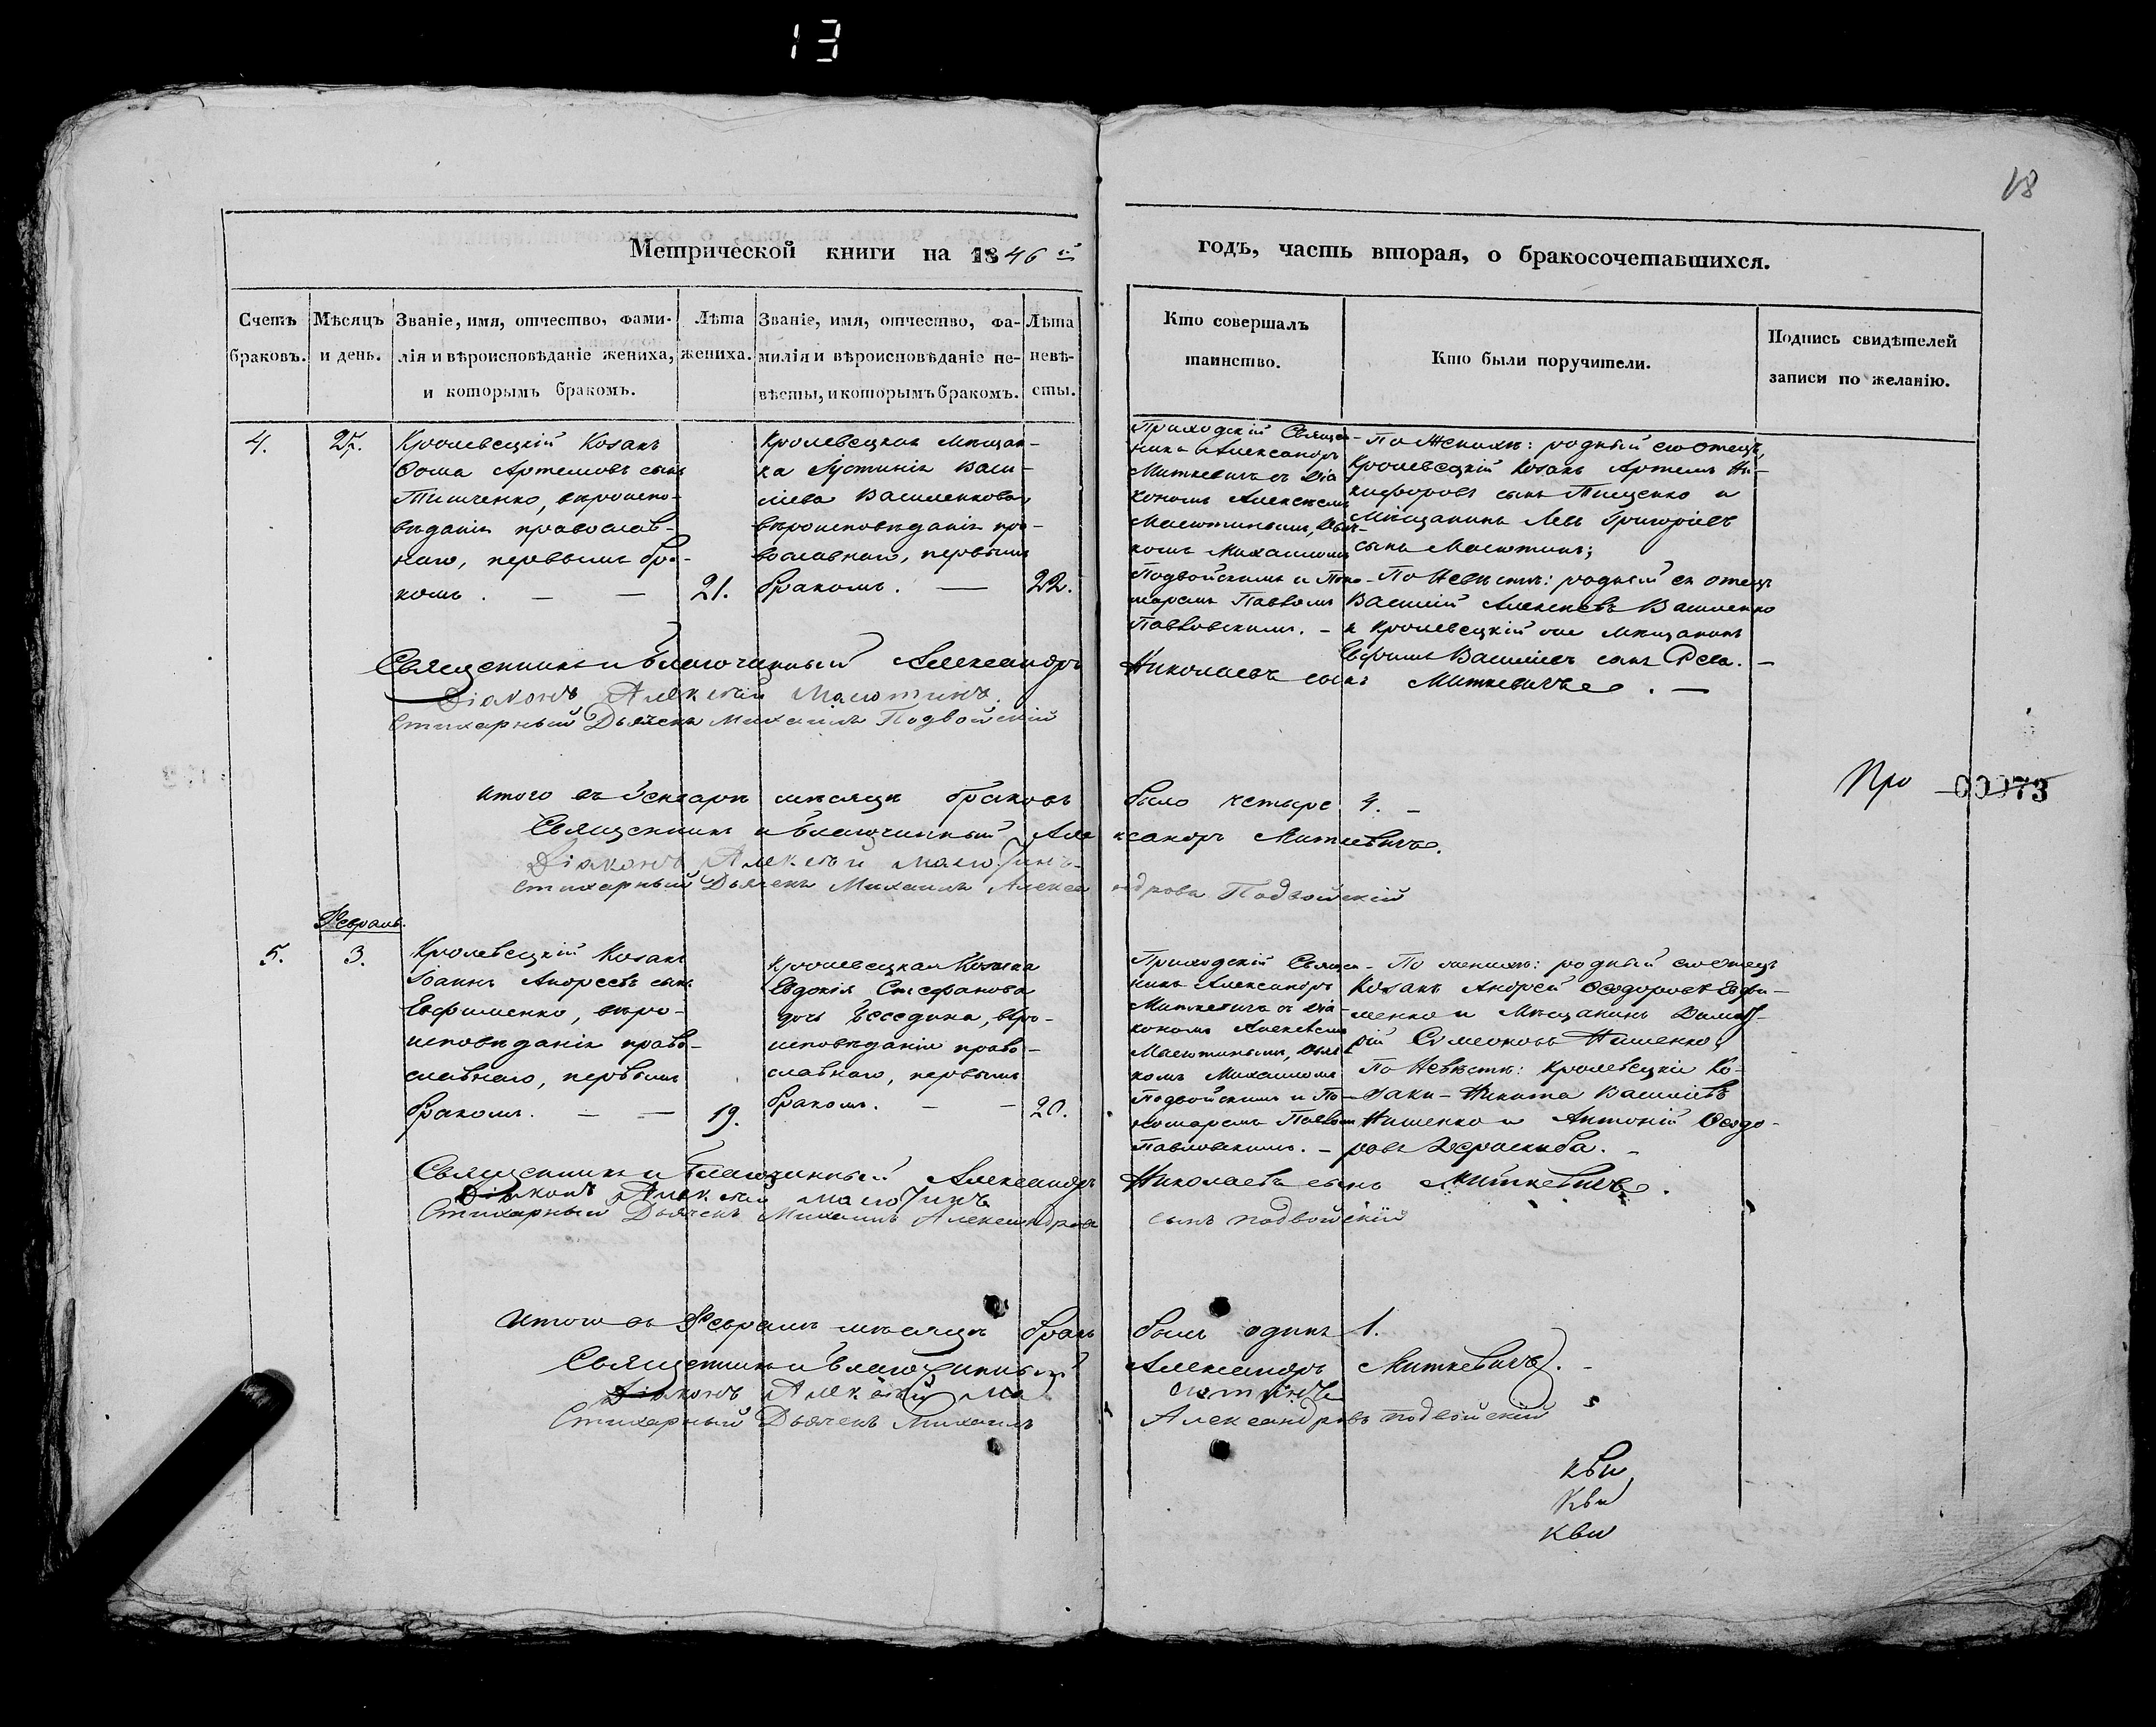 13
18
Метрической книги на 1846й
годъ, часть вторая, о бракосочетавшихся.
Счетъ браковъ.
Мѣсяцъ и день.
Званіе, имя, отчество, фами-
лія и вѣроисповѣданіе жениха,
и которымъ бракомъ.
Лѣта
жениха.
Званіе, имя, отчество, фа-
милія и вѣроисповѣданіе не-
вѣсты, и которымъ бракомъ.
Лѣта
невѣ-
сты.
Кто совершалъ
таинство.
Кто были поручители.
Подпись свидѣтелей
записи по желанію.
4.
27.
Кролевецкій Козакъ
Ѳома Артемовъ сынъ
Тищенко, вѣроиспо-
вѣданія православ-
наго, первымъ бра-
комъ. — —
21.
Кролевецкая мѣщан-
ка Іустинія Васи-
лева Василенкова
вѣроисповѣданія пра-
вославнаго, первымъ
бракомъ. —
22.
Приходскій Священ-
никъ Александръ
Миткевичъ съ Діа
кономъ Алексѣемъ
Малютинымъ, Дьяч-
комъ Михаиломъ
Подвойскимъ и Поно-
маремъ Павломъ
Павловскимъ. –
По Женихѣ: родный его Отецъ,
Кролевецкій Козакъ Артемъ Ни-
кифоровъ сынъ Тищенко и
Мѣщанинъ Левъ Григоріевъ
сынъ Малютинъ;
По Невѣстѣ: родный ея отецъ
Василій Алексѣевъ Василенко
и Кролевецкій же мѣщанинъ
Ефимъ Василіевъ сынъ –
Священникъ и Благочинный Александръ Николаевъ сынъ Миткевичъ. –
Діаконъ Алексѣй Малютинъ.
Стихарный Дьячекъ Михаилъ Подвойскій
Итого въ Генварѣ мѣсяцѣ браковъ было четыре 4. –
Священникъ и Благочинный Александръ Миткевичъ.
Діаконъ Алексѣй Малютинъ
Стихарный Дьячекъ Михаилъ Александровъ Подвойскій
Про 00073
Февраль.
5.
3.
Кролевецкій Козакъ
Іоаннъ Андреевъ сынъ
Евфименко, вѣро-
исповѣданія право-
славнаго, первымъ
бракомъ. — —
19.
Кролевецкая Козачка
Евдокія Стефанова
дочь Беседина, вѣро-
исповѣданія право-
славнаго, первымъ
бракомъ. — —
20.
Приходскій Священ-
никъ Александръ
Миткевичъ съ Діа-
кономъ Алексѣемъ
Малютинымъ, Дьяч
комъ Михаиломъ
Подвойскимъ и По-
номаремъ Павломъ
Павловскимъ. –
По женихѣ: родный его Отецъ
Козакъ Андрей Ѳеодоровъ Евфи-
менко и Мѣщанинъ Димит-
рій Симеоновъ Нашенко,
По Невѣстѣ: Кролевецкіе Ко-
заки – Никита Василіевъ
Нашенко и Антоній Ѳеодо-
ровъ –
Священникъ и Благочинный Александръ Николаевъ сынъ Миткевичъ.
Діаконъ Алексѣй Малютинъ
Стихарный Дьячекъ Михаилъ Александровъ сынъ Подвойскій
Итого въ Февралѣ мѣсяцѣ бракъ былъ одинъ 1.
Священникъ и Благочинный Александръ Миткевичъ. –
Діаконъ Алексѣй Малютинъ
Стихарный Дьячекъ Михаилъ Александровъ Подвойскій